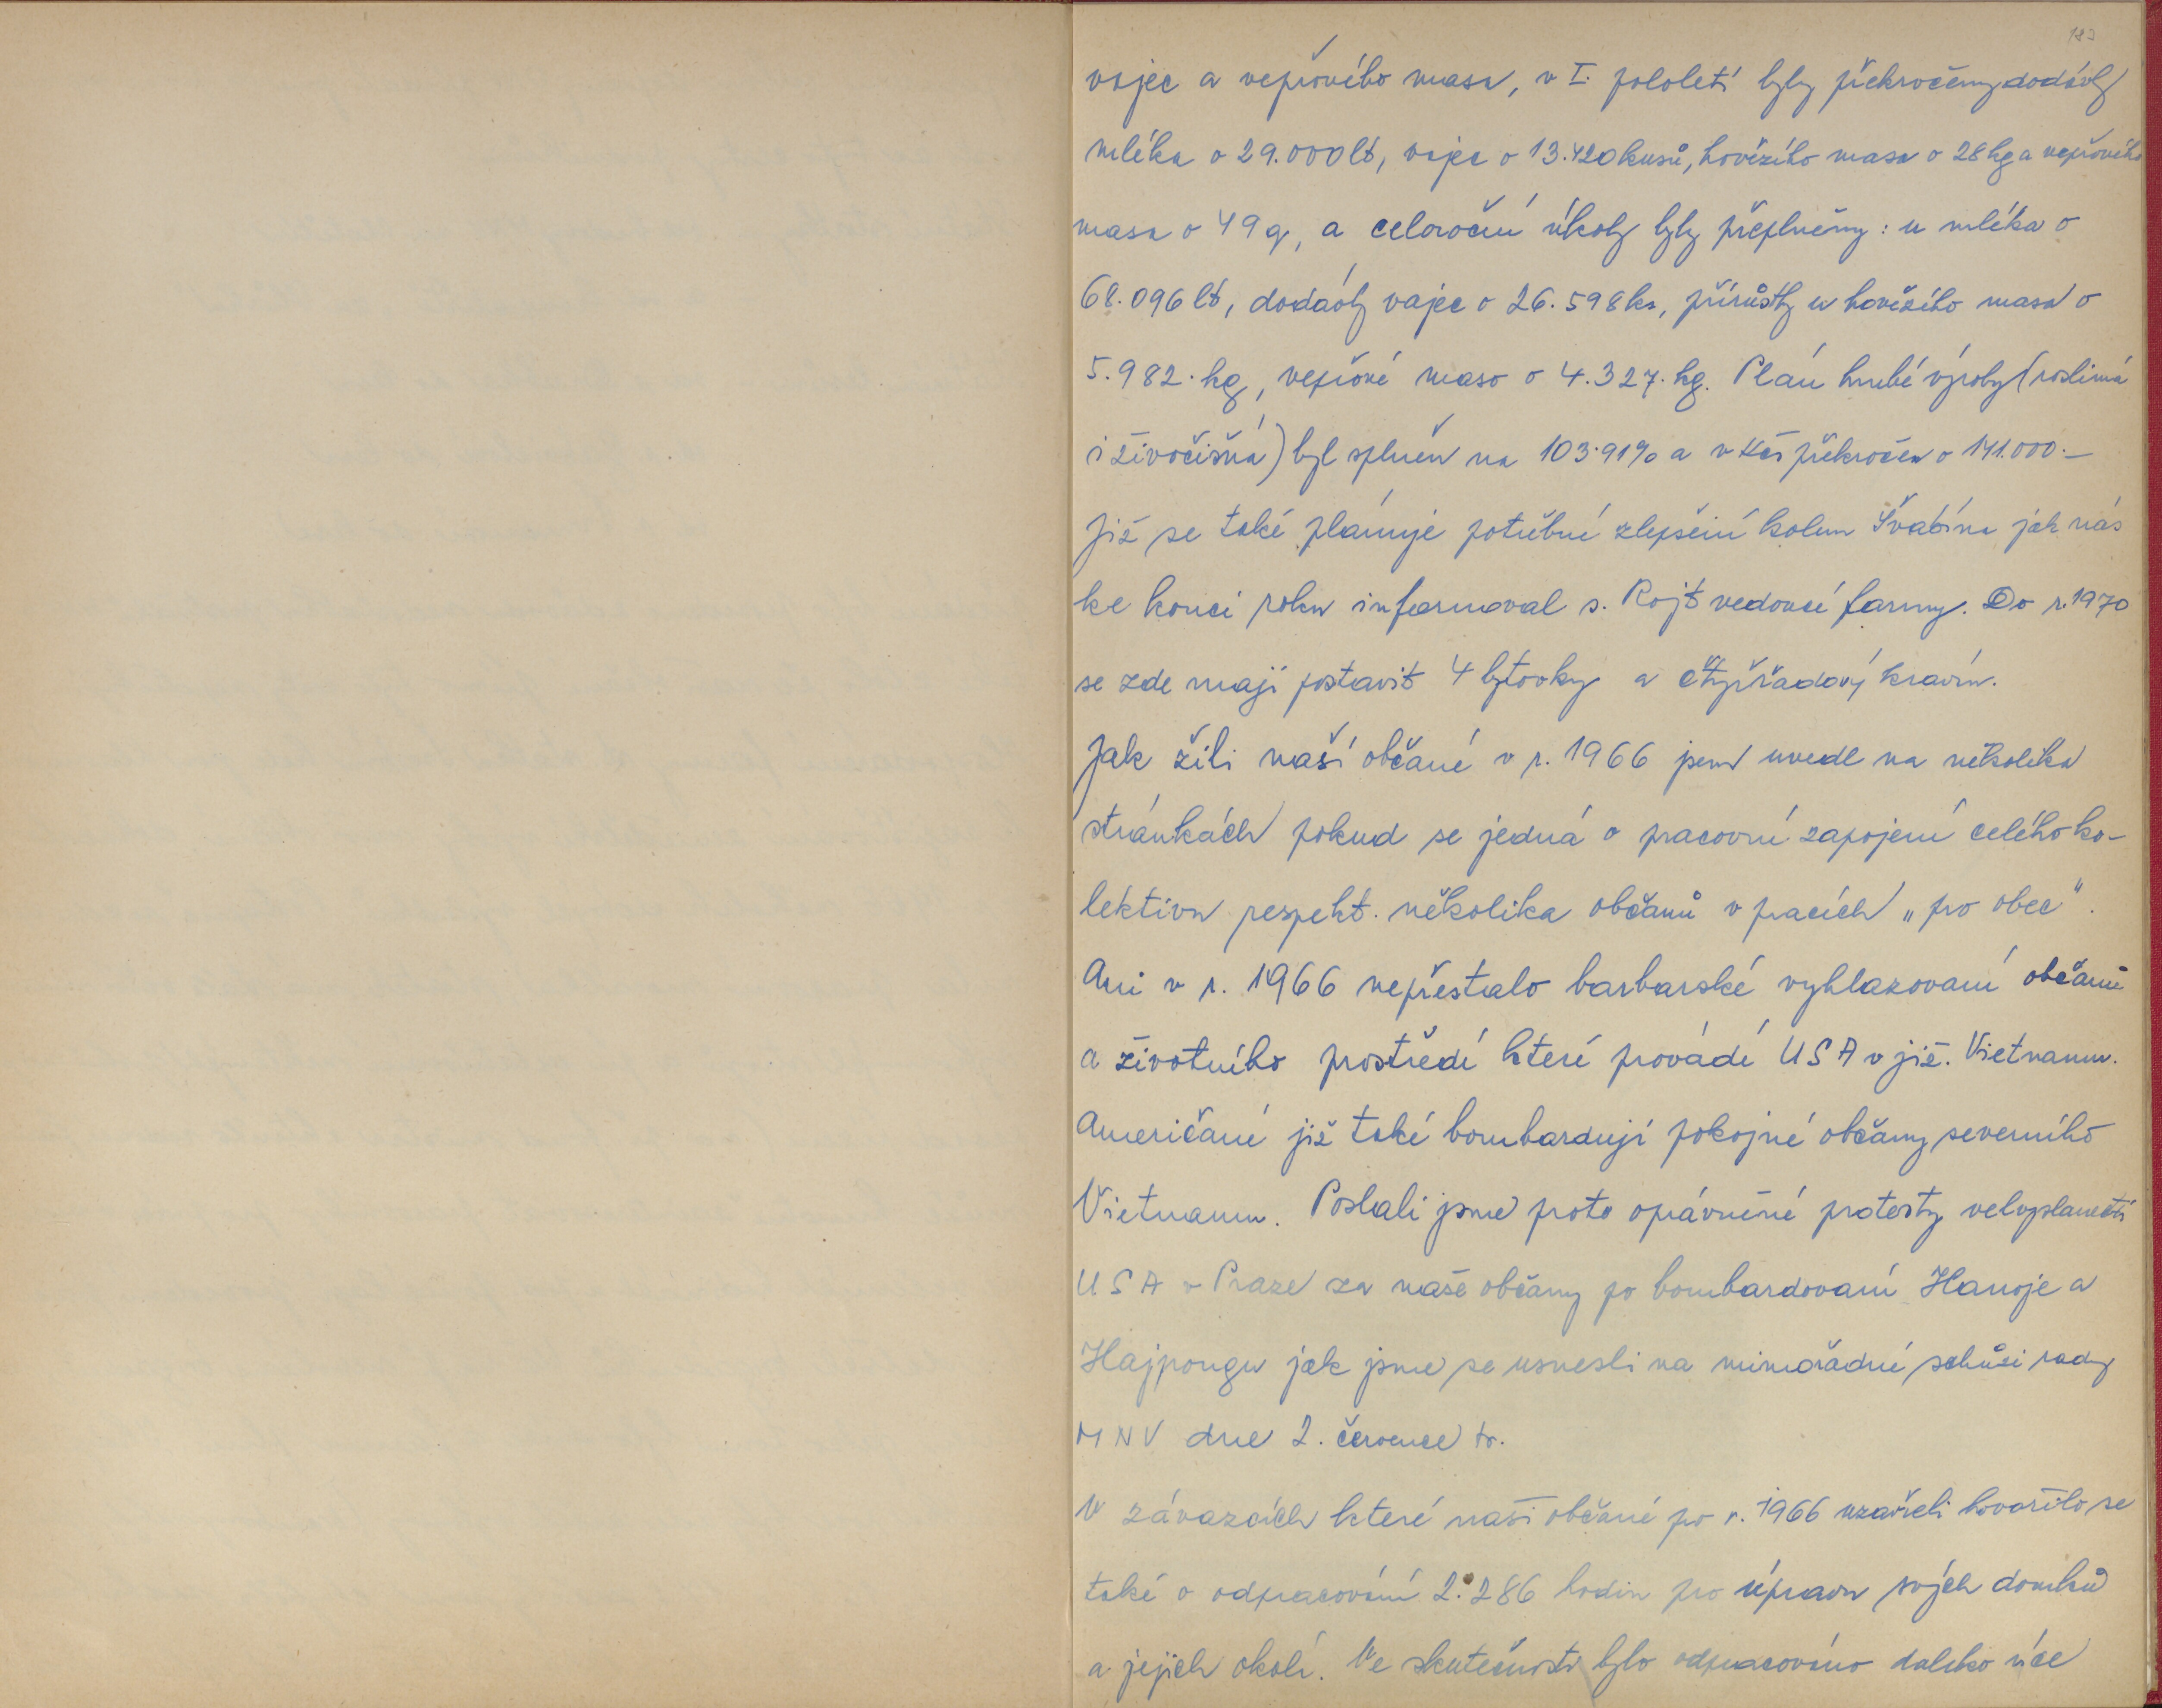 183
vajec a vepřového masa, v I. pololetí byly překročeny dodávky
mléka o 29.000 lt, vajec o 13.420 kusů, hovězího masa o 28 kg a vepřového
masa o 49 q, a celoroční úkoly byly přeplněny: u mléka o
68.096 lt, dodávky vajec o 26.598 ks, přírůstky u hovězího masa o
5.982. kg, vepřové maso o 4.327. kg. Plán hrubé výroby (roslinná
i živočišná) byl splněn na 103.91% a v Kčs překročen o 141.000.-
Již se také plánuje potřebné zlepšení kolem Švabína jak nás
ke konci roku informoval s. Rojt vedoucí farmy. Do r. 1970
se zde mají postavit 4 bytovky a čtyřřadový kravín.
Jak žili naší občané v r. 1966 jsem uvedl na několika
stránkách pokud se jedná o pracovní zapojení celého ko-
lektivu respekt. několika občanů v pracích "pro obec".
Ani v r. 1966 nepřestalo barbarské vyhlazovaní občanů
a životního prostředí které provádí USA v již. Vietnamu.
Američané již také bombardují pokojné občany severního
Vietnamu. Poslali jsme proto oprávněné protesty velvyslanectí
USA v Praze za naše občany po bombardovaní Hanoje a
Hajpongu jak jsme se usnesli na mimořádné schůzi rady
MNV dne 2. července tr.
V závazcích které naši občané pro r. 1966 uzavřeli hovořilo se
také o odpracování 2.286 hodin pro úpravu svých domků
a jejich okolí. Ve skutečnosti bylo odpracováno daleko více